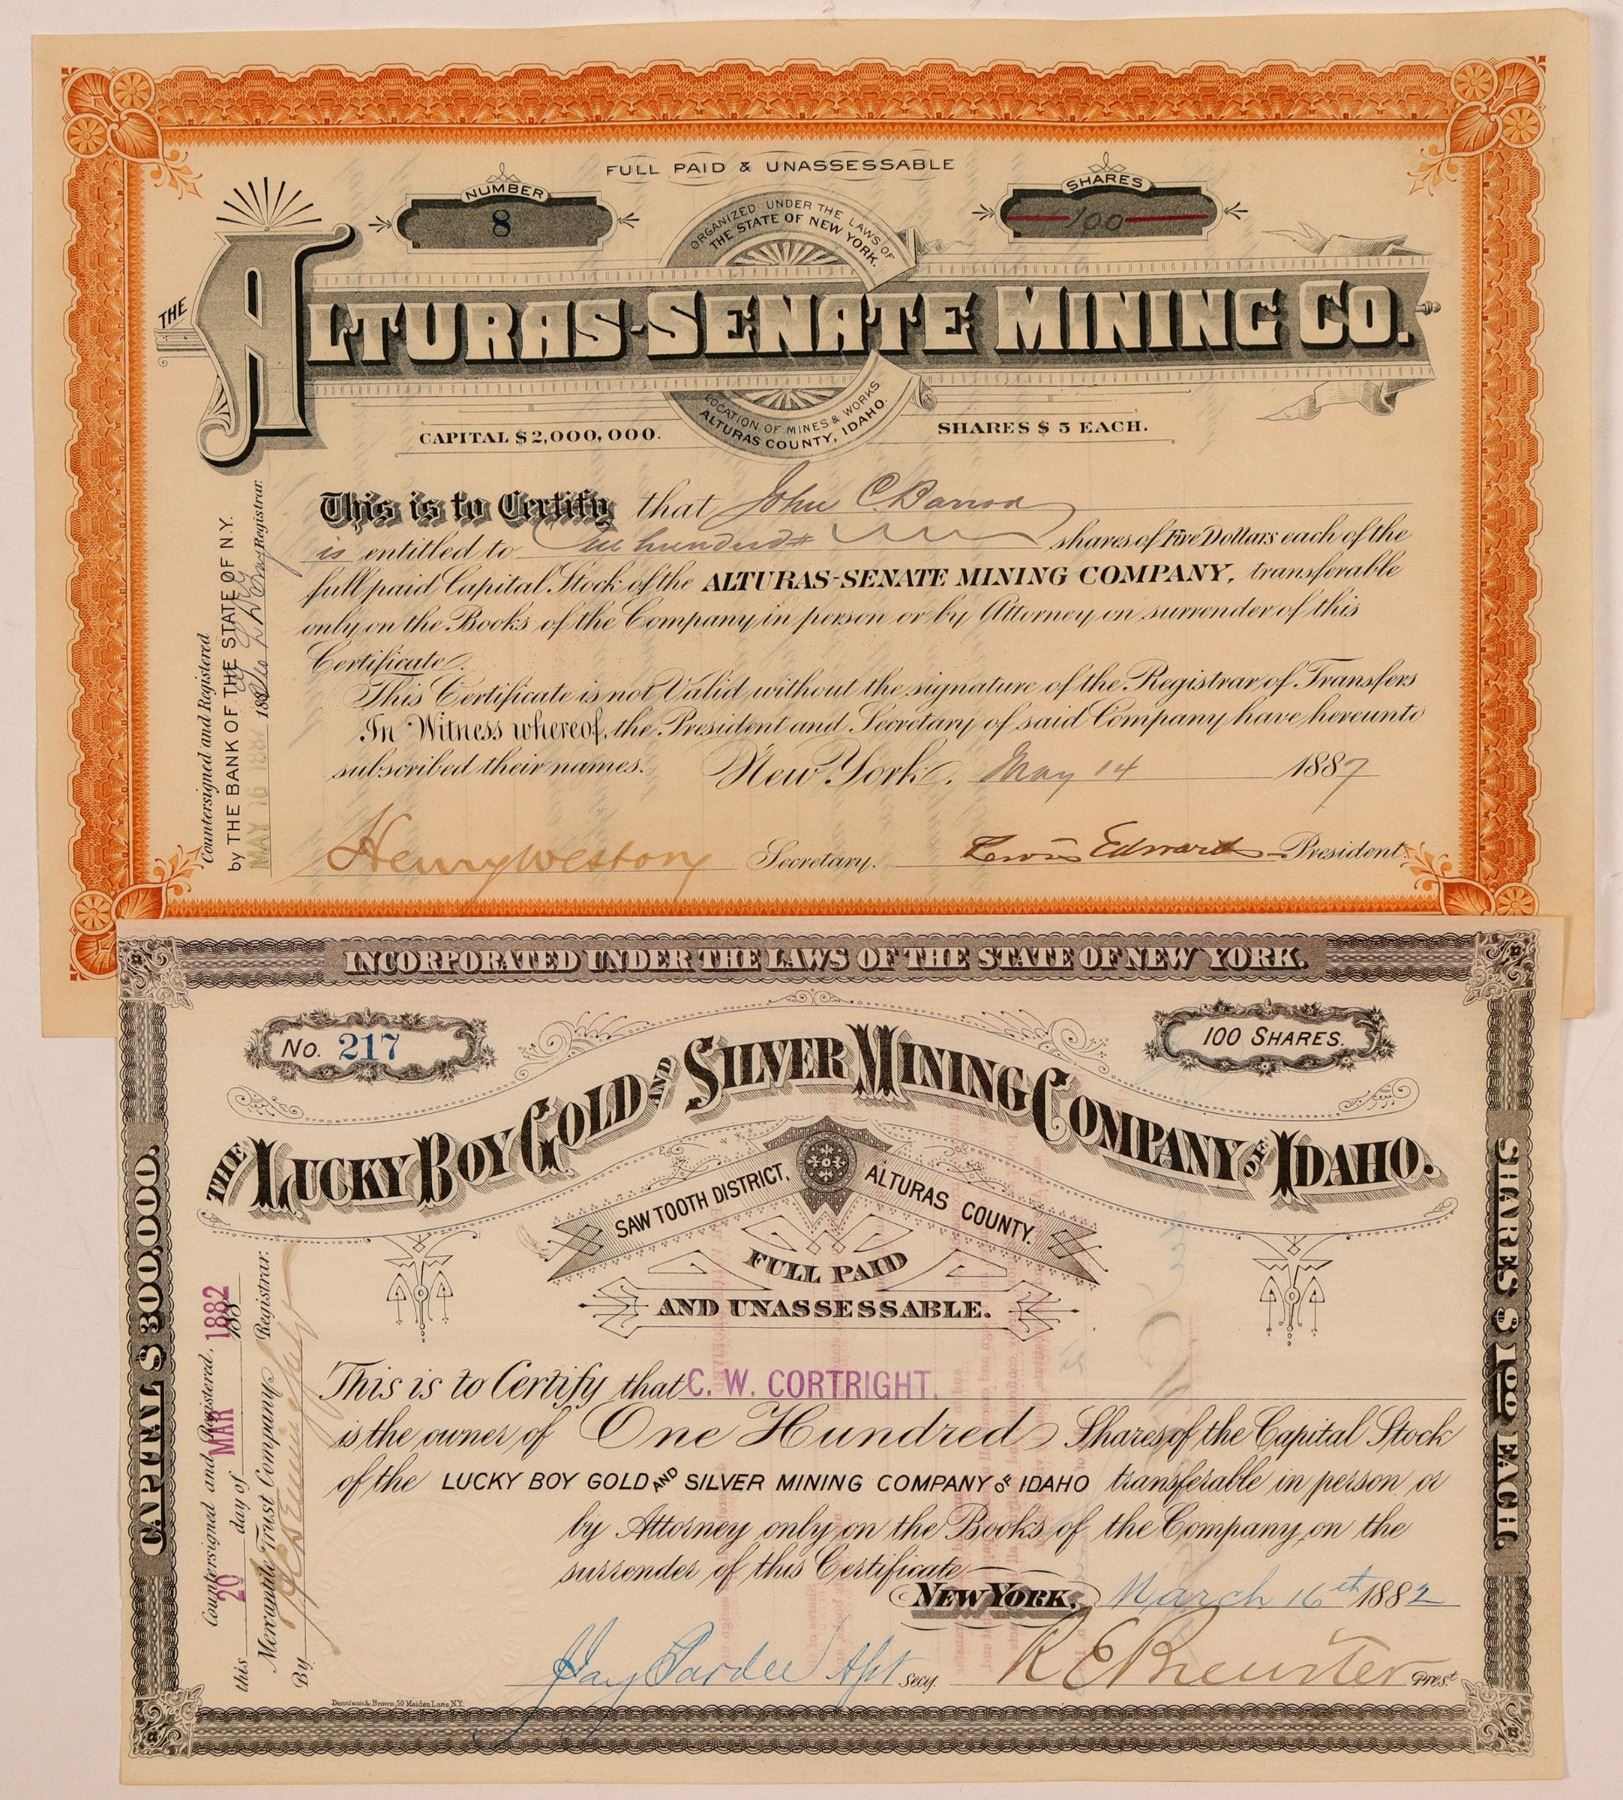 FULL PAID & UNASSESSABLE
NUMBER
8
SHARES
100
ORGANIZED UNDER THE LAWS OF
THE STATE OF NEW YORK.
THE ALTURAS-SENATE MINING CO.
LOCATION OF MINES & WORKS
ALTURAS COUNTY, IDAHO.
CAPITAL $2,000,000.
SHARES $5 EACH.
This is to Certify that John C. Barron
is entitled to One hundred shares of Five Dollars each of the
full paid Capital Stock of the ALTURAS-SENATE MINING COMPANY, transferable
only on the Books of the Company in person or by Attorney on surrender of this
Certificate.
This Certificate is not Valid without the signature of the Registrar of Transfers
In Witness whereof, the President and Secretary of said Company have hereunto
subscribed their names. New York, May 14 1887
Henry Weston Secretary. Lewis Edwards President
Countersigned and Registered
by THE BANK OF THE STATE OF N.Y.
MAY 16 1887 188
Registrar.
INCORPORATED UNDER THE LAWS OF THE STATE OF NEW YORK.
No. 217
100 SHARES.
THE LUCKY BOY GOLD AND SILVER MINING COMPANY OF IDAHO.
SAW TOOTH DISTRICT, ALTURAS COUNTY.
FULL PAID
AND UNASSESSABLE.
CAPITAL $300,000.
SHARES $100 EACH.
This is to Certify that C. W. CORTRIGHT.
is the owner of One Hundred Shares of the Capital Stock
of the LUCKY BOY GOLD AND SILVER MINING COMPANY OF IDAHO transferable in person or
by Attorney only on the Books of the Company, on the
surrender of this Certificate
NEW YORK, March 16th 1882
Jay Pardee Asst Secy. R E Brewster Prest
Countersigned and Registered,
this 20 day of MAR 1882 188
Mercantile Trust Company Registrar.
By
Dennison & Brown, 59 Maiden Lane N.Y.